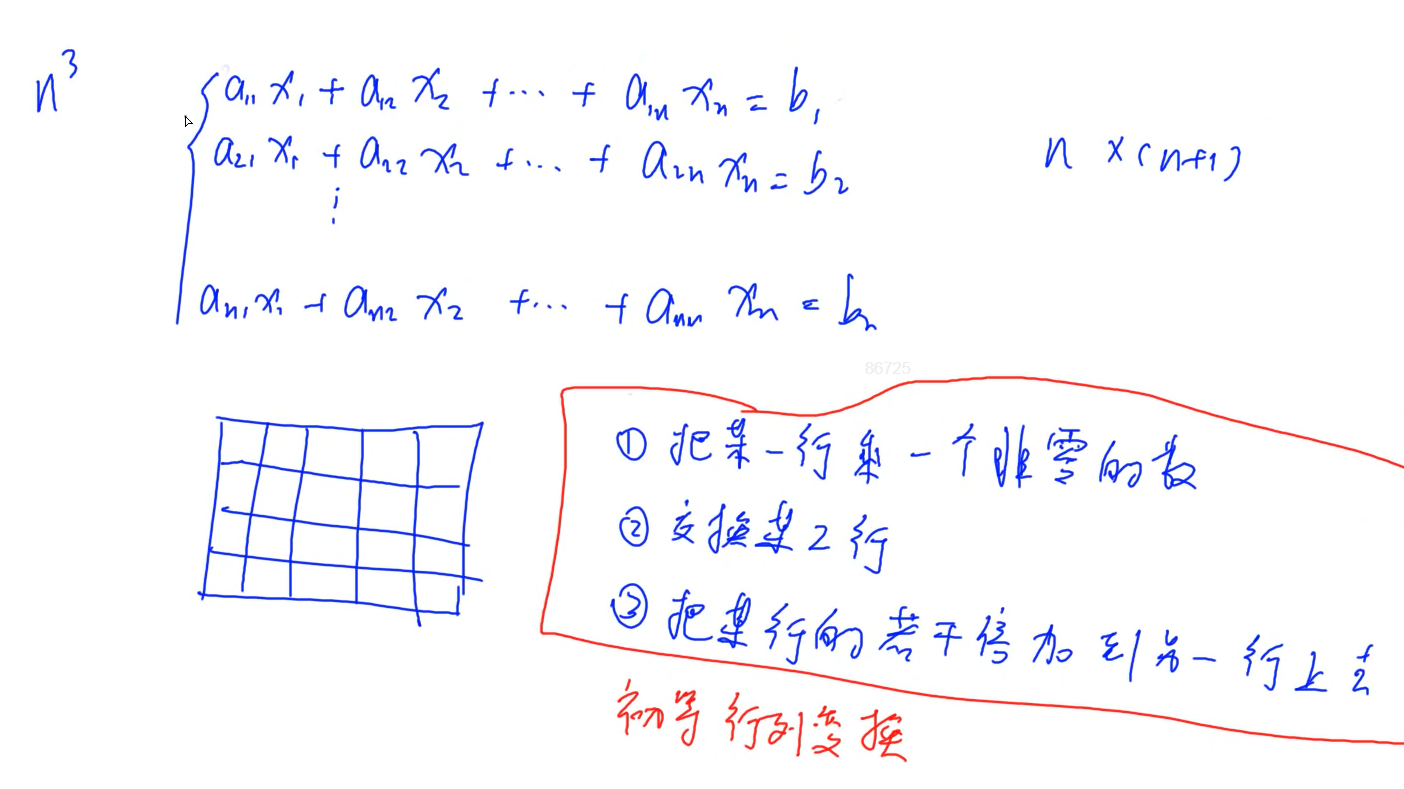 n³
a₁₁ x₁ + a₁₂ x₂ + ⋯ + a₁ₙ xₙ = b₁
a₂₁ x₁ + a₂₂ x₂ + ⋯ + a₂ₙ xₙ = b₂
⋮
n × (n+1)
aₙ₁ x₁ + aₙ₂ x₂ + ⋯ + aₙₙ xₙ = bₙ
86725
① 把某一行乘一个非零的数
② 交换某2行
③ 把某行的若干倍加到另一行上去
初等行列变换